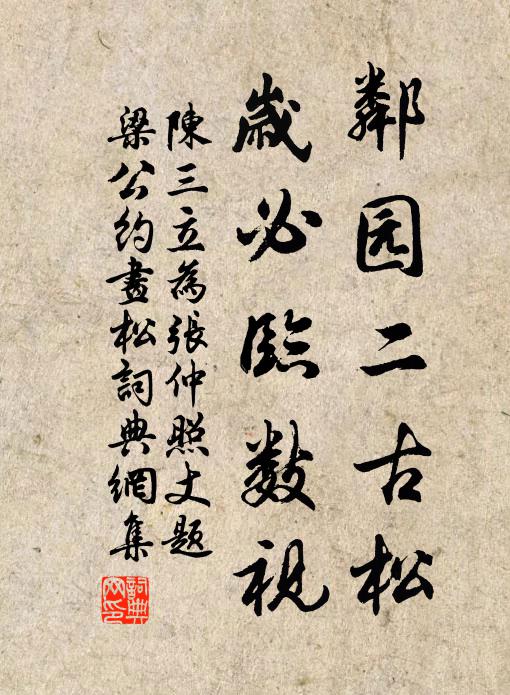 鄰园二古松
歲必臨数視
陳三立為張仲照丈題
梁公約畫松詞典網集
詞典